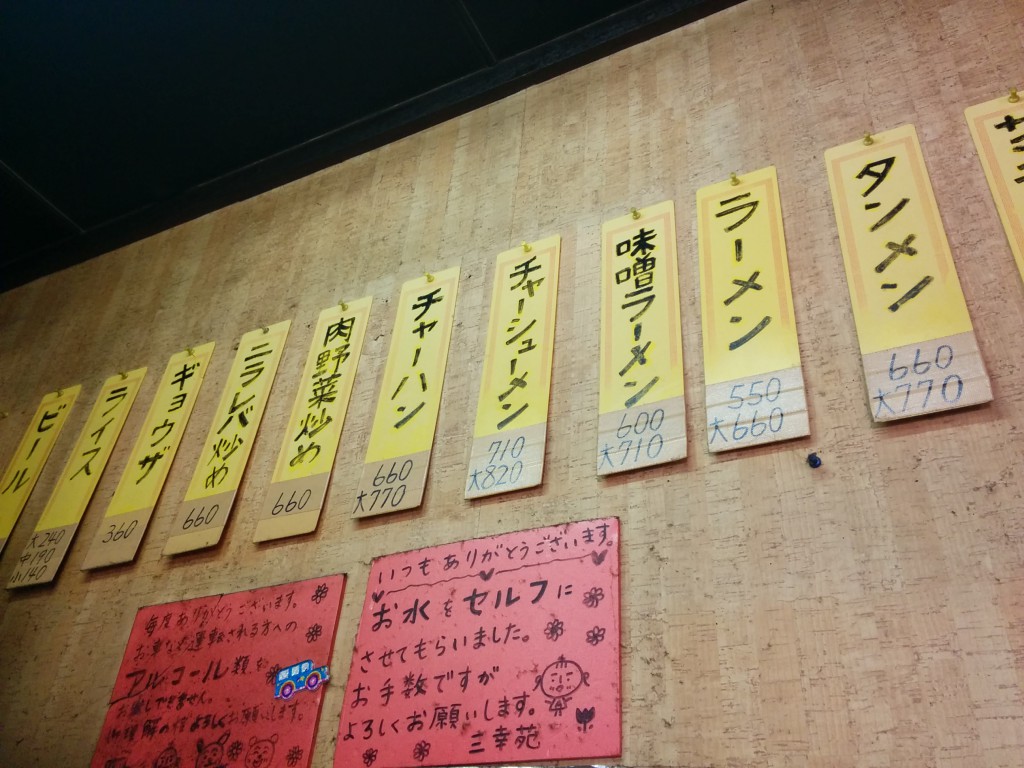 タンメン
660
大770
ラーメン
550
大660
味噌ラーメン
600
大710
チャーシューメン
710
大820
チャーハン
660
大770
肉野菜炒め
660
ニラレバ炒め
660
ギョウザ
360
ライス
大240
中190
小140
ビール
いつもありがとうございます。
お水をセルフに
させてもらいました。
お手数ですが
よろしくお願いします。
三幸苑
毎度ありがとうございます。
お車など運転される方への
アルコール類を
お出しできません。
御理解の程よろしくお願いします。